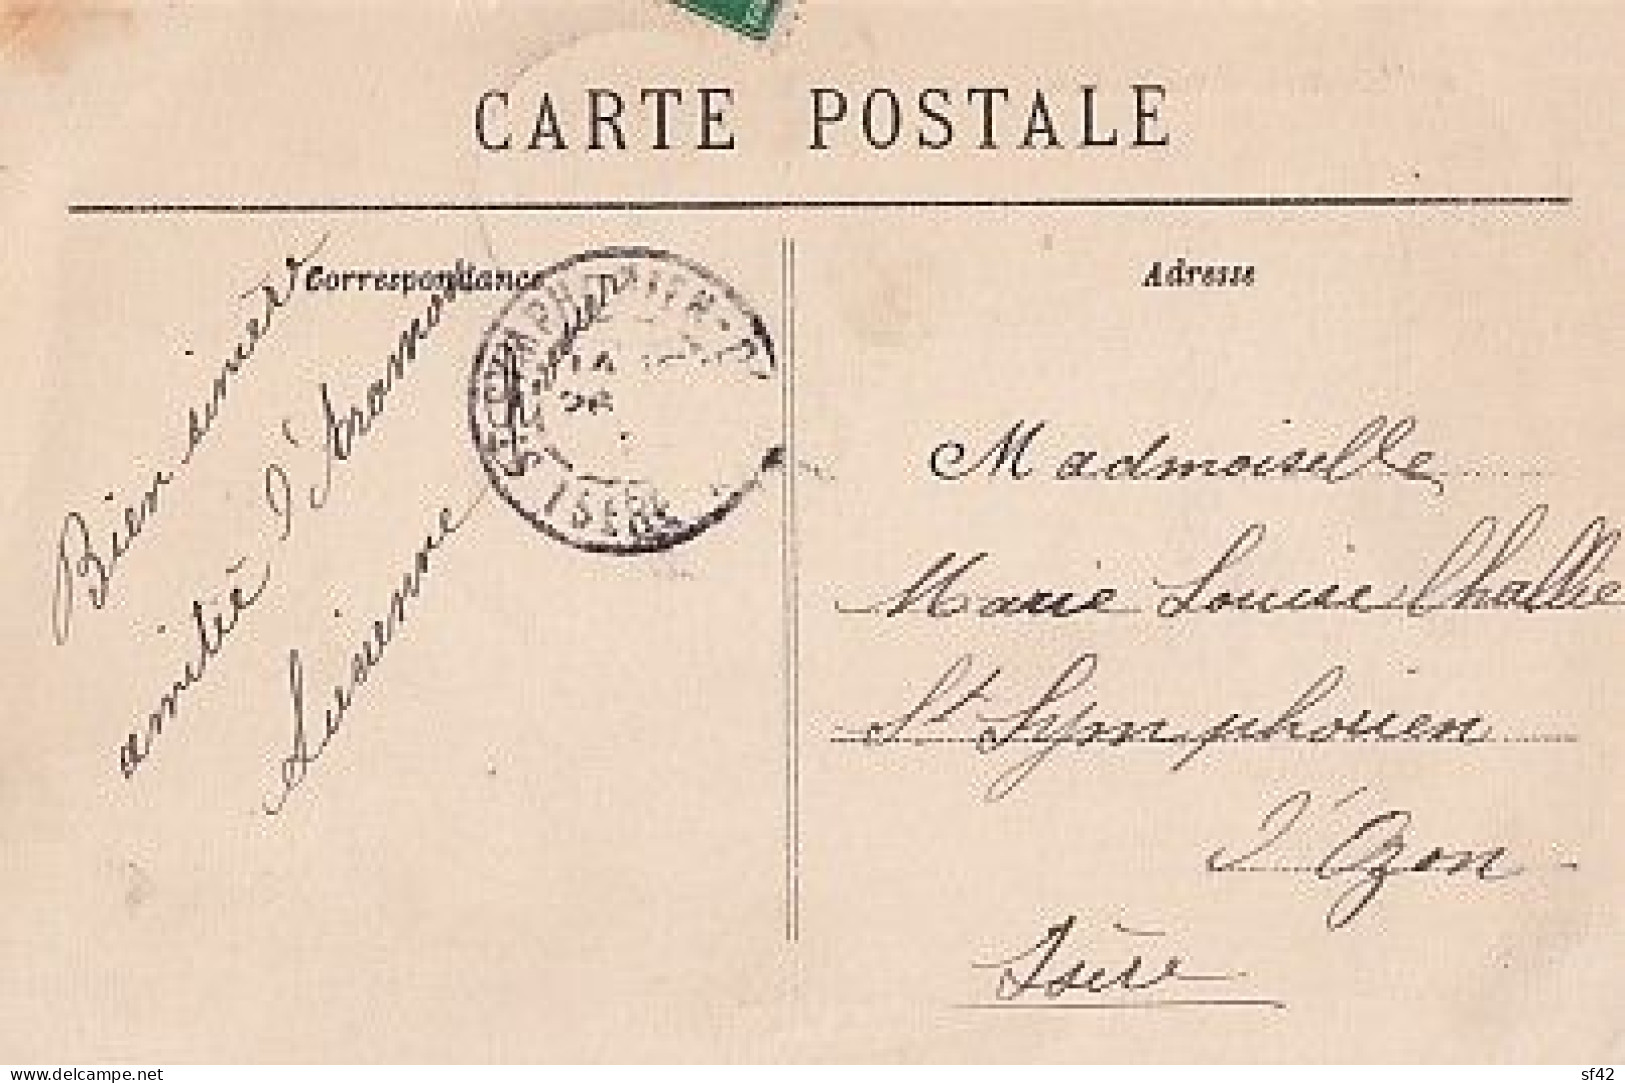 CARTE POSTALE
Correspondance
Adresse
Bien sincère
amitié d'Aramon
Lucienne
ISERE
Madmoiselle
Marie Louise Challie
St Symphorien
d'Ozon
Isère
delcampe.net
sf42